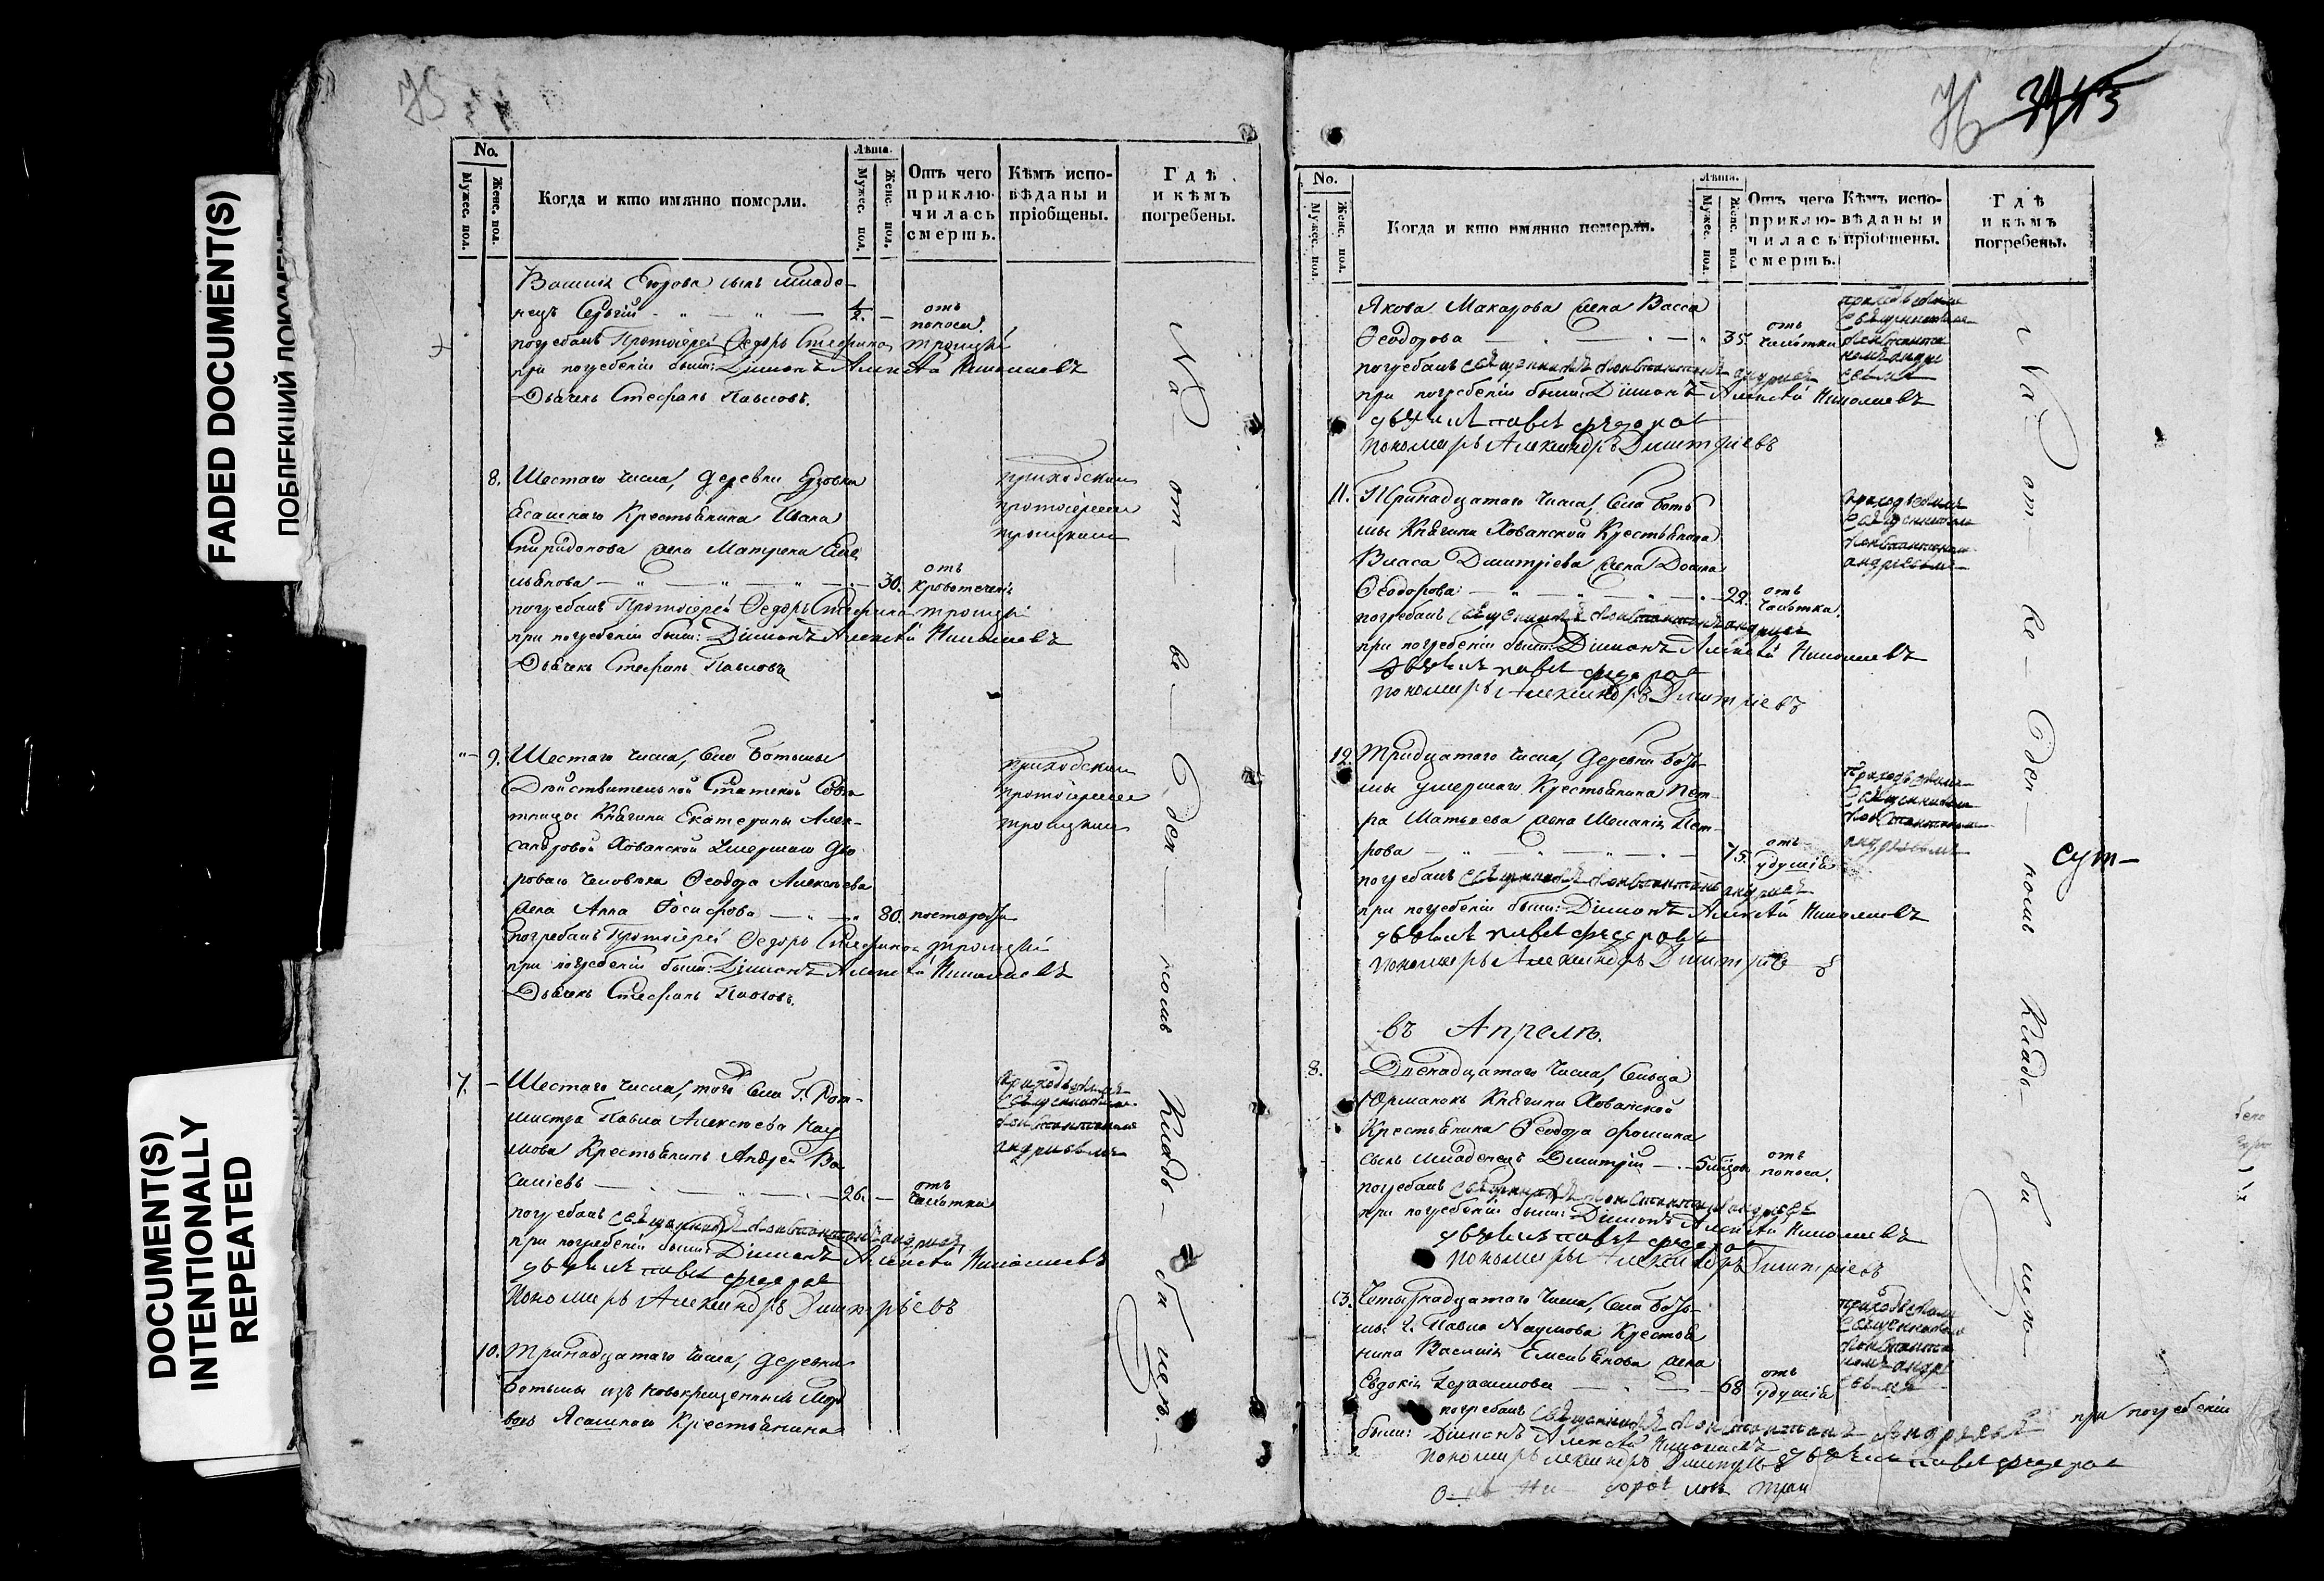 FADED DOCUMENT(S)
DOCUMENT(S)
INTENTIONALLY
REPEATED
75
No.
Мужес. пол.
Женс. пол.
Когда и кто имянно померли.
Лѣта.
Мужес. пол.
Женс. пол.
Отъ чего приключилась смерть.
Кѣмъ исповѣданы и пріобщены.
Гдѣ и кѣмъ погребены.
Василья Егорова сынъ младе-
нецъ Сергій 1/2. отъ поноса.
погребалъ Протоіерей Ѳедоръ Стефановъ Троицкій
при погребеніи были: Діаконъ Алексѣй Николаевъ
Дьячекъ Стефанъ Павловъ.
8. Шестаго числа, деревни
Ясашнаго Крестьянина Ивана приходскимъ
Спиридонова жена Матрена Еме- протоіереемъ
льянова 30. отъ кровотеченія Троицкимъ
погребалъ Протоіерей Ѳедоръ Стефановъ Троицкій
при погребеніи были: Діаконъ Алексѣй Николаевъ
Дьячекъ Стефанъ Павловъ
9. Шестаго числа, села Ботьмы
Дѣйствительной Статской Совѣ- приходскимъ
тницы Княгини Екатерины Алек- протоіереемъ
сандровой Хованской умершаго дво- Троицкимъ
роваго человѣка Ѳеодора Алексѣева
жена Анна Іосифова 80. по старости
погребалъ Протоіерей Ѳедоръ Стефановъ Троицкій
при погребеніи были: Діаконъ Алексѣй Николаевъ
Дьячекъ Стефанъ Павловъ.
7. Шестаго числа, того села Г. Рот- приходскимъ
мистра Павла Алексѣева Нау- священникомъ
мова Крестьянинъ Андрей Ва- Константиномъ
силіевъ 26. отъ чахотки Андреевымъ
погребалъ священникъ Константинъ Андреевъ
при погребеніи были: Діаконъ Алексѣй Николаевъ
Павелъ Федоровъ
Пономарь Александръ Димитріевъ
10. Тринадцатаго числа, деревни
Ботьмы изъ новокрещенныхъ Морд-
вовъ Ясашнаго Крестьянина
На отведенномъ кладбищѣ.
76
No.
Мужес. пол.
Женс. пол.
Когда и кто имянно померли.
Лѣта.
Мужес. пол.
Женс. пол.
Отъ чего приключилась смерть.
Кѣмъ исповѣданы и пріобщены.
Гдѣ и кѣмъ погребены.
Якова Макарова жена Васса приходскимъ священникомъ
Ѳеодорова 35. отъ чахотки Константиномъ Андреевымъ
погребалъ священникъ Константинъ Андреевъ
при погребеніи были: Діаконъ Алексѣй Николаевъ
Павелъ Федоровъ
Пономарь Александръ Димитріевъ
11. Тринадцатаго числа, села Боть- приходскимъ
мы Княгини Хованской Крестьянина священникомъ
Власа Димитріева жена Домна Константиномъ
Ѳеодорова 22. отъ чахотки. Андреевымъ
погребалъ священникъ Константинъ Андреевъ
при погребеніи были: Діаконъ Алексѣй Николаевъ
Павелъ Федоровъ
Пономарь Александръ Димитріевъ
12. Тридцатаго числа, деревни Боть- приходскимъ
мы умершаго Крестьянина Пет- священникомъ
ра Матвѣева жена Меланія Пет- Константиномъ
рова 75. отъ удушія Андреевымъ
погребалъ священникъ Константинъ Андреевъ
при погребеніи были: Діаконъ Алексѣй Николаевъ
Павелъ Федоровъ
Пономарь Александръ Димитріевъ
въ Апрелѣ.
8. Двенадцатаго числа, сельца
Юрманокъ Княгини Хованской
Крестьянина Ѳеодора
сынъ младенецъ Димитрій 5 отъ поноса.
погребалъ священникъ Константинъ Андреевъ
при погребеніи были: Діаконъ Алексѣй Николаевъ
Павелъ Федоровъ
Пономарь Александръ Димитріевъ
13. Четырнадцатаго числа, села Боть- приходскимъ
мы г. Павла Наумова Крестья- священникомъ
нина Василія Емельянова жена Константиномъ
Евдокія Герасимова 68 отъ удушія Андреевымъ
погребалъ священникъ Константинъ Андреевъ при погребеніи
были: Діаконъ Алексѣй Николаевъ
Пономарь Александръ Димитріевъ Павелъ Федоровъ
На отведенномъ кладбищѣ
сут-